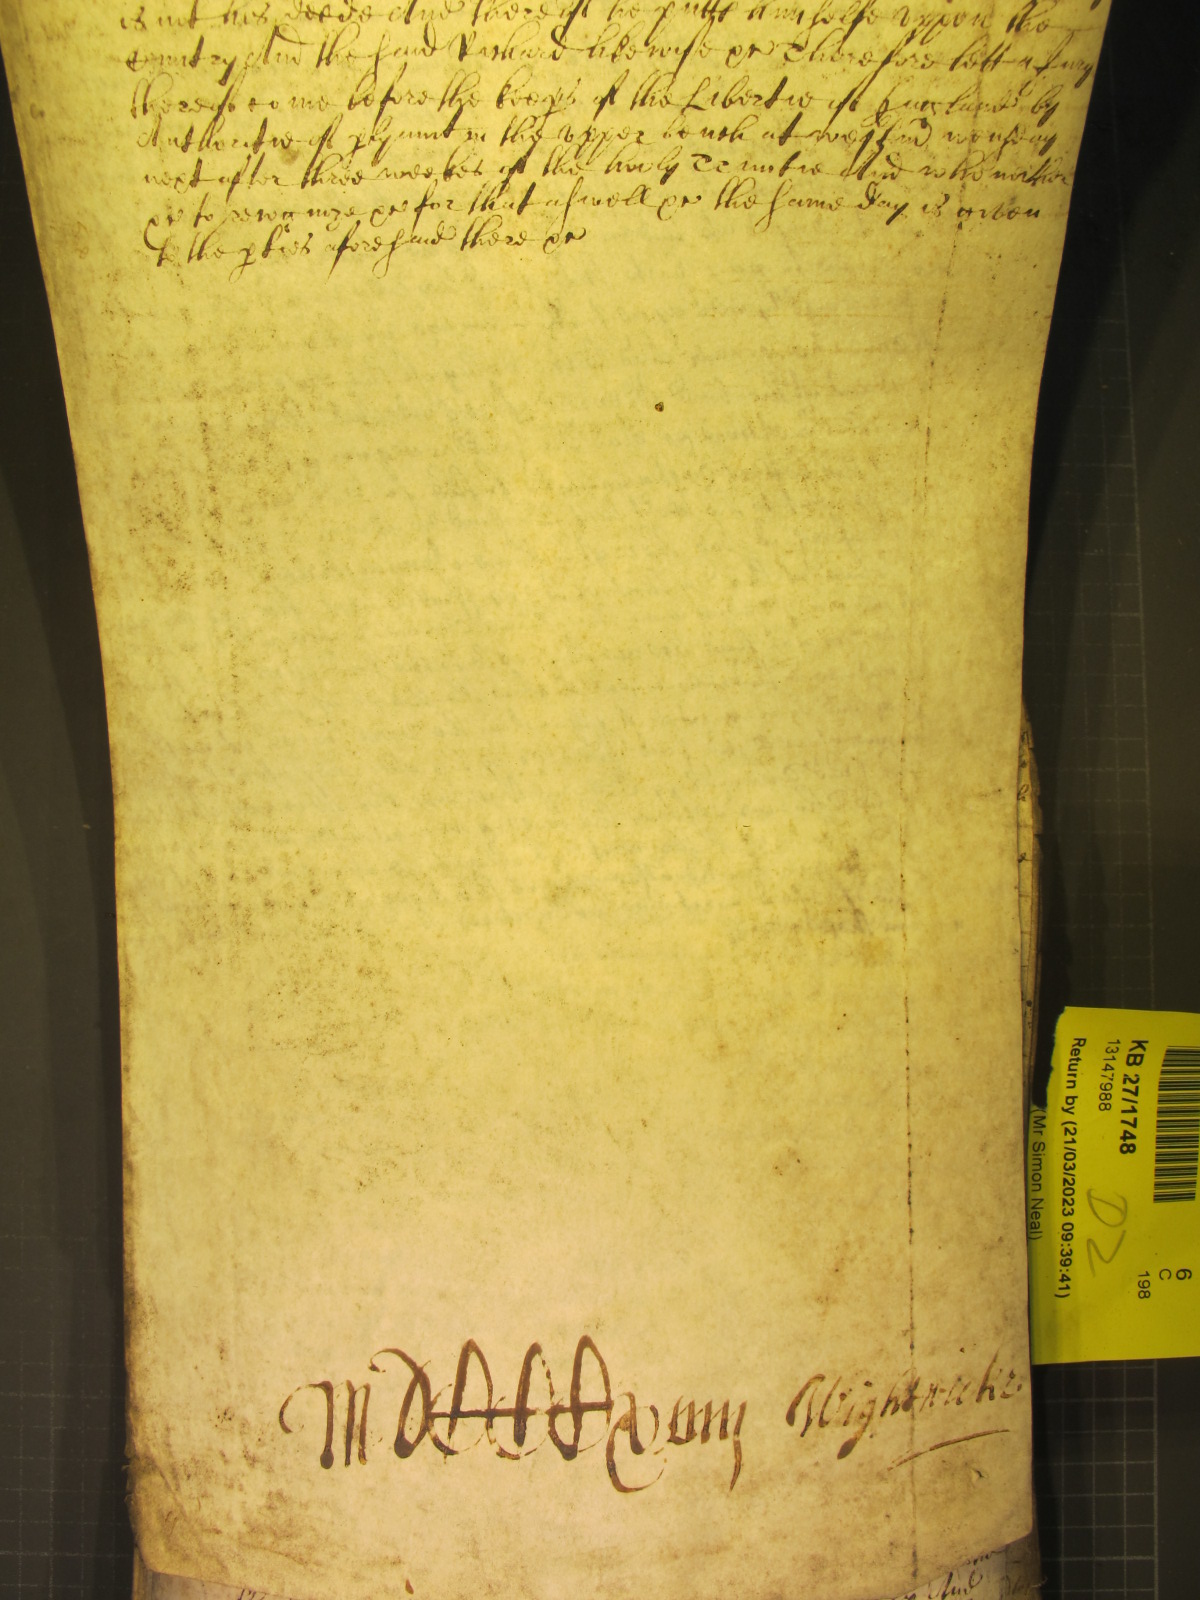 is not his deede And thereof he putts himselfe uppon the
countrey And the said Richard likewise &c Therefore lett a Jury
thereof come before the keeps of the Libertie of England by
Authoritie of plyament in the upper bench at Westm̃ wensday
next after three weekes of the holy Trinitie And who neither
&c to recognize &c for that aswell &c the same day is given
to the pties aforesaid there &c
Wightwicke
KB 27/1748
13147988
Return by (21/03/2023 09:39:41)
(Mr Simon Neal)
D2
6
C
198
And